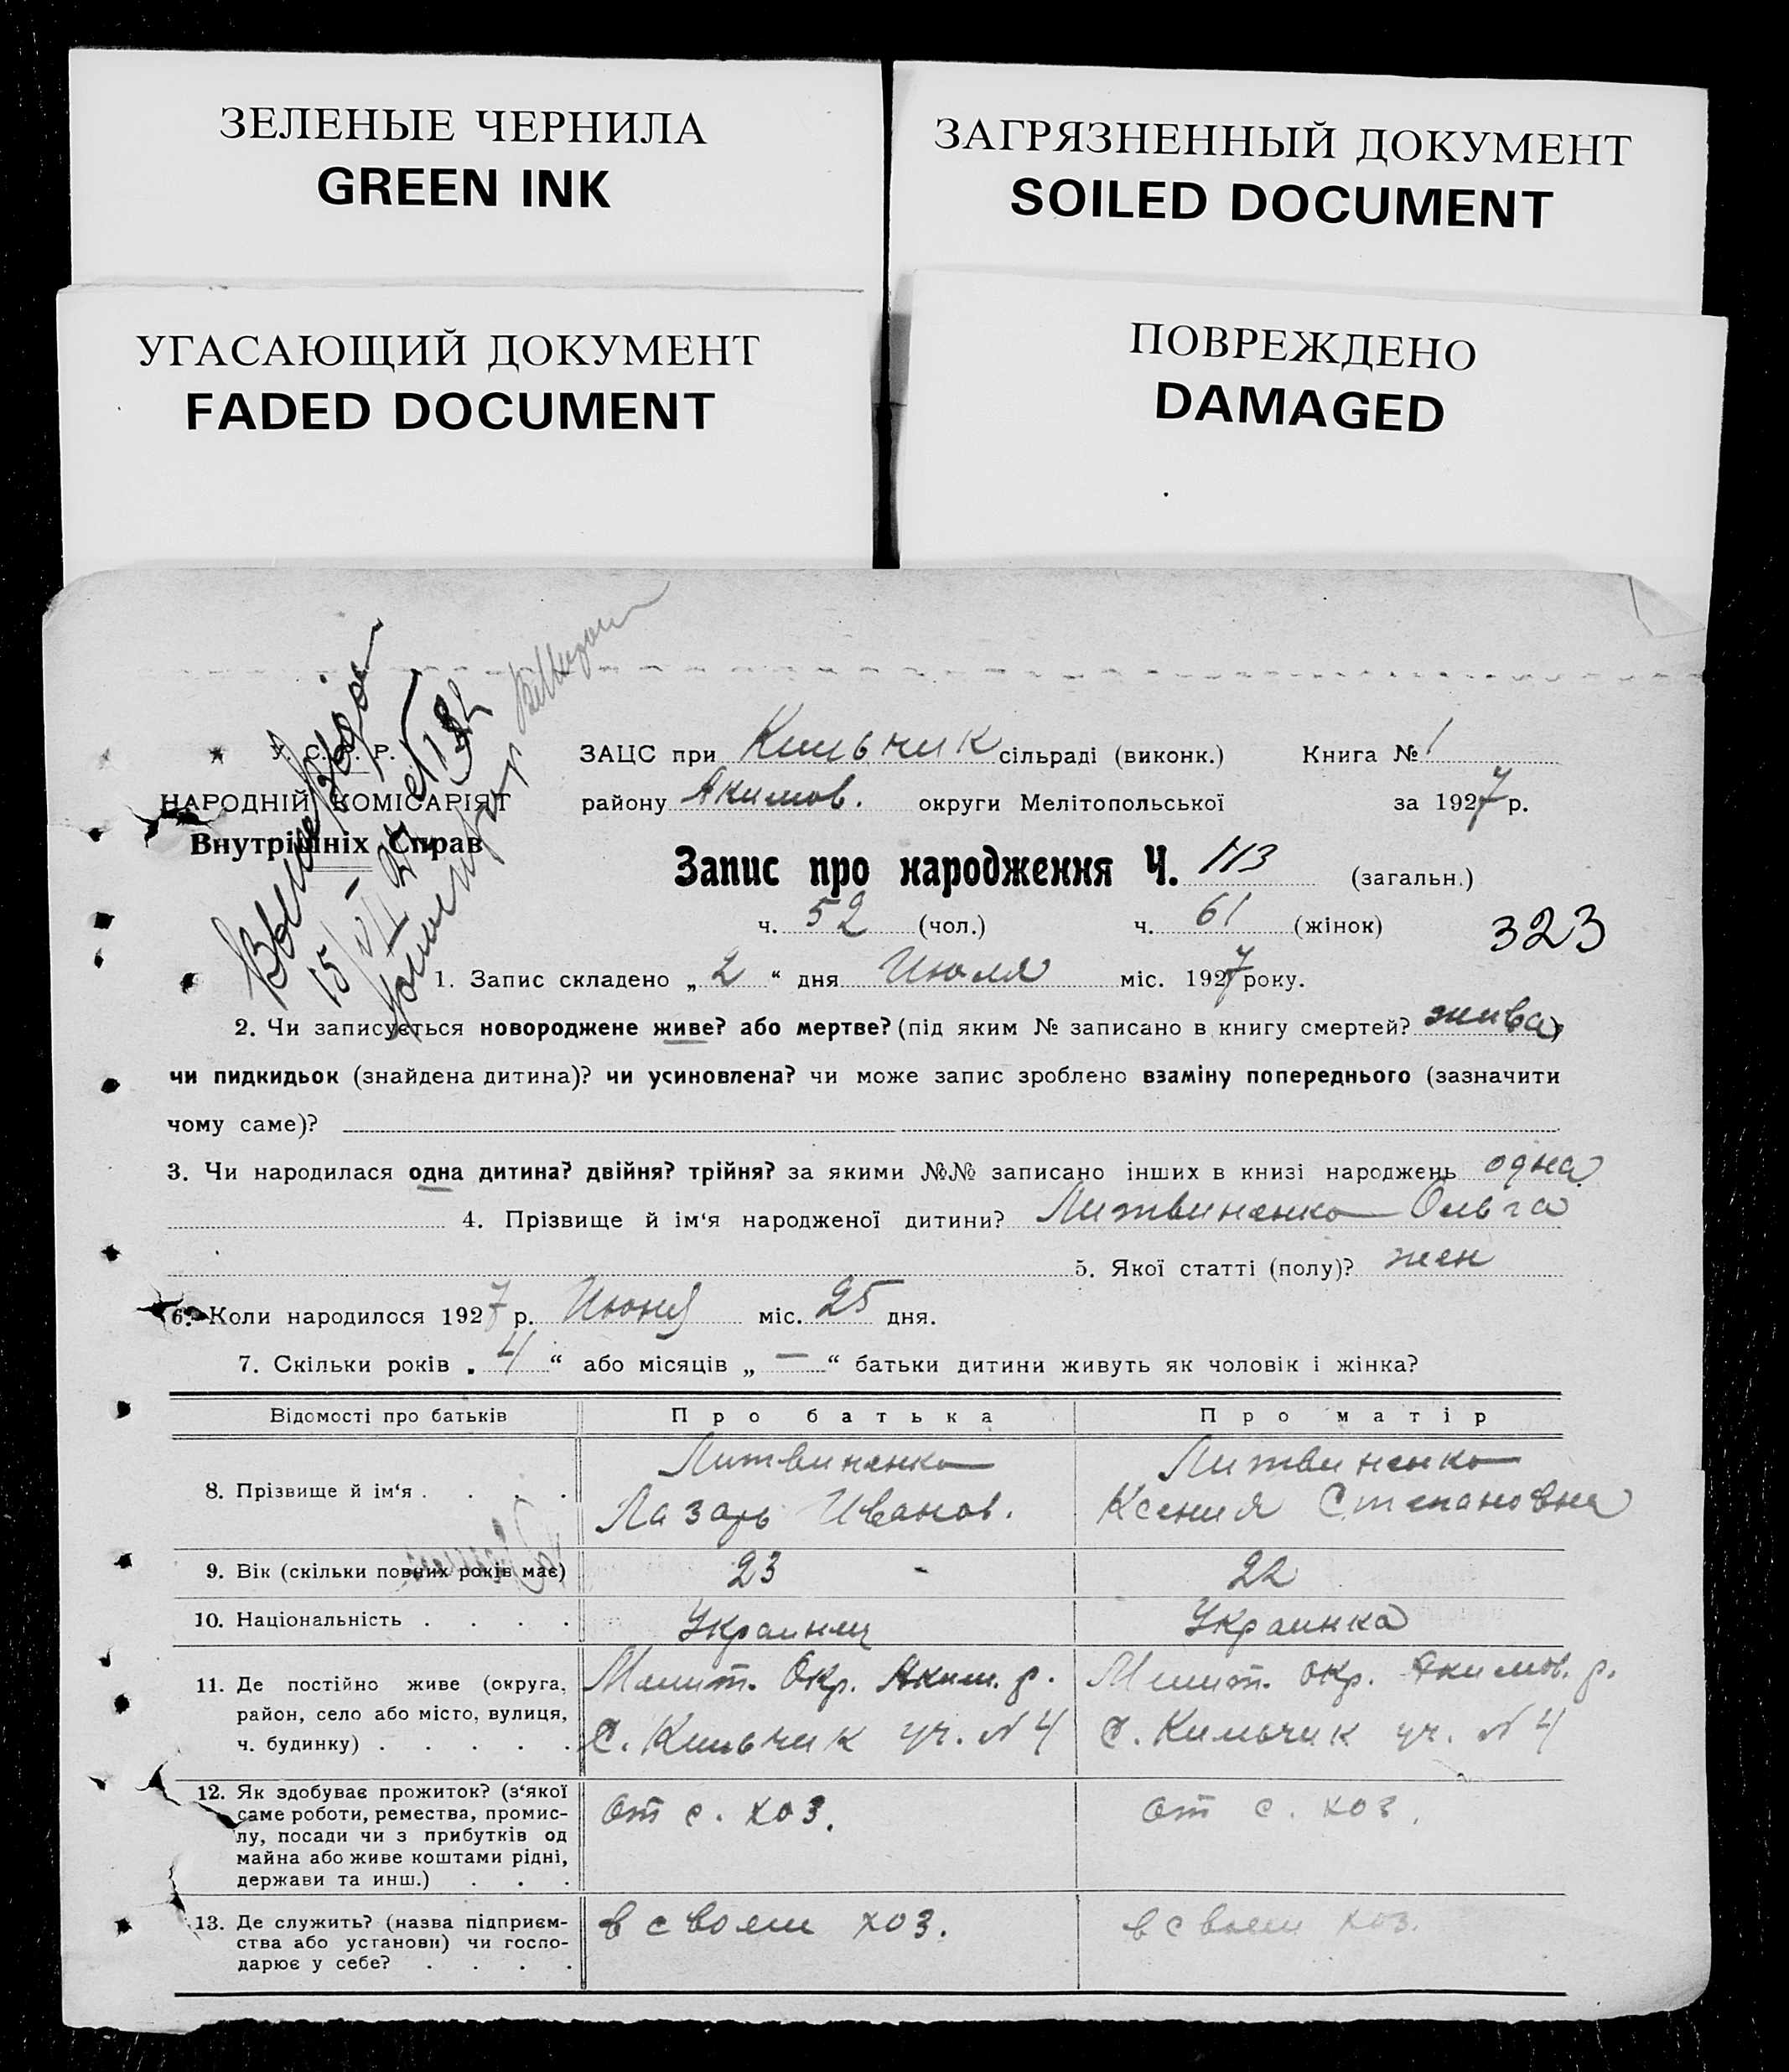 ЗЕЛЕНЫЕ ЧЕРНИЛА
GREEN INK
ЗАГРЯЗНЕННЫЙ ДОКУМЕНТ
SOILED DOCUMENT
УГАСАЮЩИЙ ДОКУМЕНТ
FADED DOCUMENT
ПОВРЕЖДЕНО
DAMAGED
У. С. Р. Р.
НАРОДНІЙ КОМІСАРІЯТ
Внутрішніх Справ
ЗАЦС при Кильчик сільраді (виконк.) Книга № 1
району Акимов. округи Мелітопольської за 1927 р.
Запис про народження Ч. 113 (загальн.)
ч. 52 (чол.) ч. 61 (жінок) 323
1. Запис складено „ 2 “ дня Июля міс. 1927 року.
2. Чи записується новороджене живе? або мертве? (під яким № записано в книгу смертей? жива)
чи пидкидьок (знайдена дитина)? чи усиновлена? чи може запис зроблено взаміну попереднього (зазначити
чому саме)?
3. Чи народилася одна дитина? двійня? трійня? за якими №№ записано інших в книзі народжень одна
4. Прізвище й ім‘я народженої дитини? Литвиненко Ольга
5. Якої статті (полу)? жен
6. Коли народилося 1927 р. Июня міс. 25 дня.
7. Скільки років „ 4 “ або місяців „ — “ батьки дитини живуть як чоловік і жінка?
Відомості про батьків Про батька Про матір
8. Прізвище й ім‘я . . . . Литвиненко Лазарь Иванов. Литвиненко Ксения Степановна
9. Вік (скільки повних років має) 23 22
10. Національність . . . . Украинец Украинка
11. Де постійно живе (округа,
район, село або місто, вулиця,
ч. будинку) . . . . .
Мелит. Окр. Аким. р.
С. Кильчик уч. № 4
Мелит. окр. Акимов. р.
С. Кильчик уч. № 4
12. Як здобуває прожиток? (з‘якої
саме роботи, ремества, промис-
лу, посади чи з прибутків од
майна або живе коштами рідні,
держави та инш.) . . .
От с. хоз.
От с. хоз.
13. Де служить? (назва підприєм-
ства або установи) чи госпо-
дарює у себе? . . . .
в своем хоз.
в своем хоз.